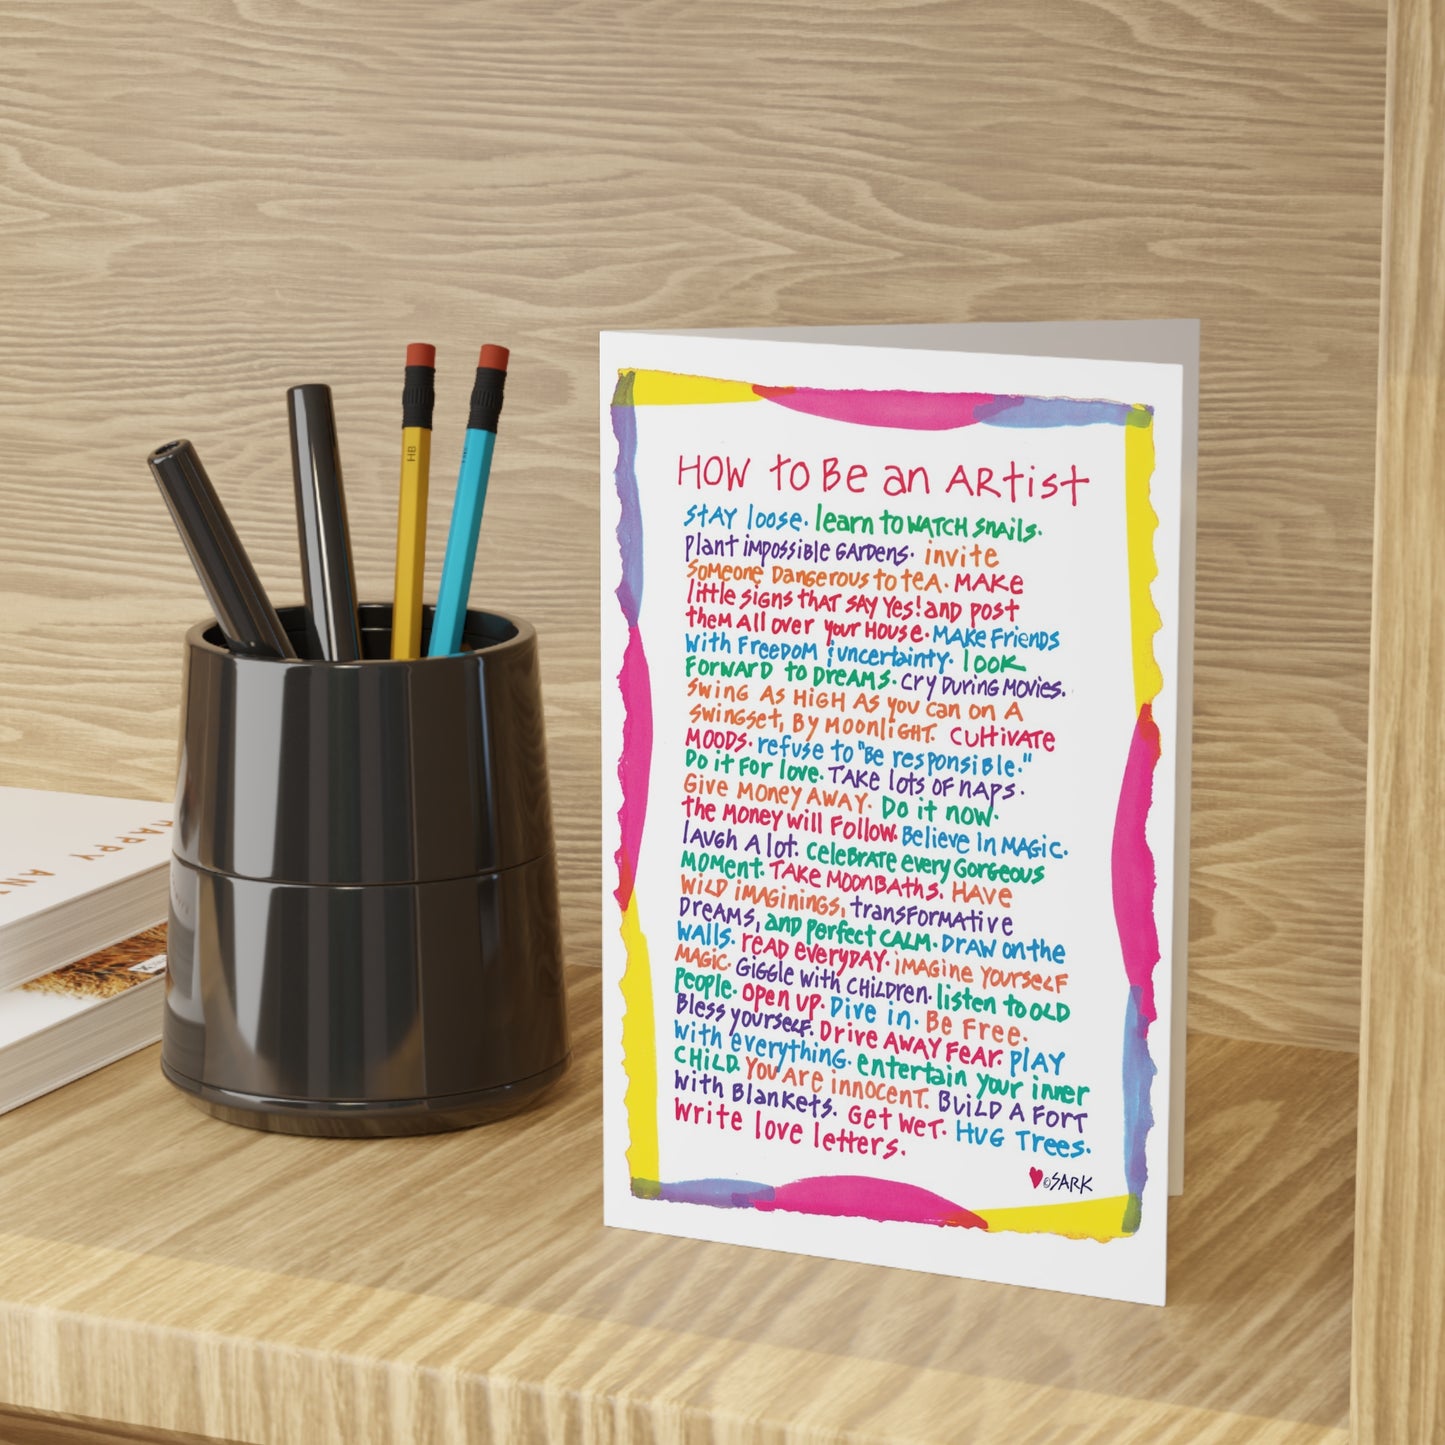 HOW to Be an ARtist
StAY loose. learn to WATCH snails.
plant impossible GARDens. invite
someone Dangerous to teA. MAKe
little signs that SAY Yes! and post
them All over your House. MAKe Friends
with Freedom & uncertainty. look
Forward to Dreams. Cry During Movies.
Swing As HIGH As you can on A
Swingset, By Moonlight. Cultivate
MOODS. refuse to "Be responsible."
Do it For love. TAKe lots of naps.
Give Money AWAY. Do it now.
the Money will Follow. Believe in MAGic.
laugh A lot. CeleBrate every Gorgeous
MOMent. TAKe MoonBaths. HAVe
wild imaginings, transFormAtive
DreAMs, and perfect CALM. DRAW on the
WAlls. reAD everyDAY. imAGine YourseLF
MAGic. Giggle with CHilDren. listen to OLD
people. open up. Dive in. Be Free.
Bless yourself. Drive AWAY Fear. plAY
with everything. entertain your inner
CHILD. You Are innocent. BuilD A Fort
with BlanKets. Get wet. HUG Trees.
Write love letters.
©SARK
HAPPY ANT
HB